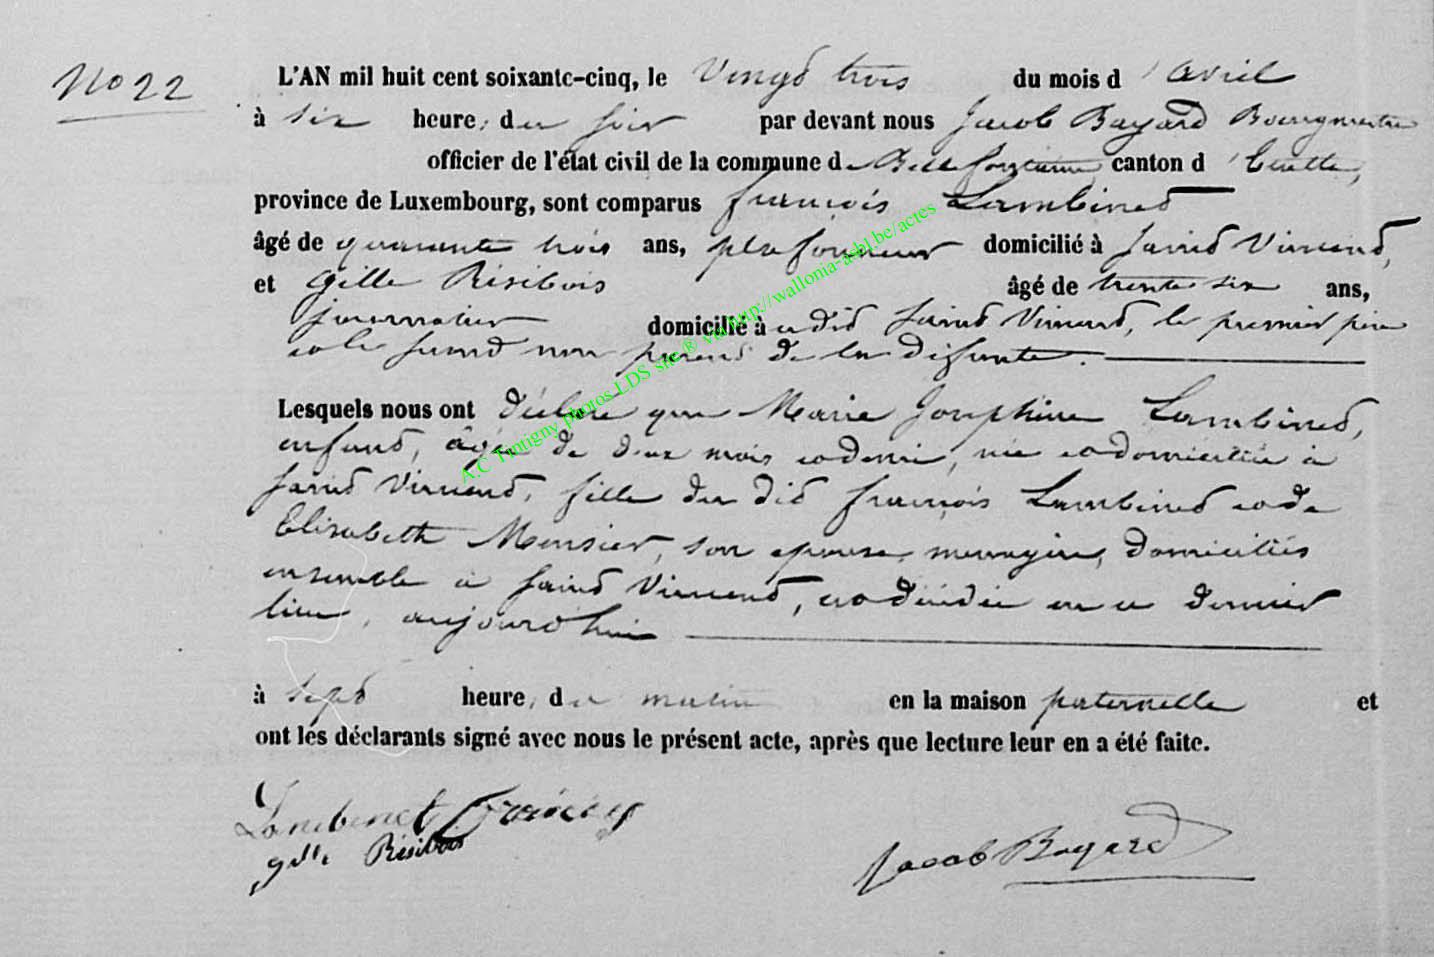 No 22
L'AN mil huit cent soixante-cinq, le Vingt trois du mois d'avril
à six heure, du soir par devant nous Jacob Bayard Bourgmestre
officier de l'état civil de la commune de Bellefontaine canton d'Etalle,
province de Luxembourg, sont comparus françois Lambinet
âgé de quarante trois ans, plafonneur domicilié à Saint Vincent,
et Gille Résibois âgé de trente six ans,
journalier domicilié à audit Saint Vincent, le premier père
et le second non parent de la défunte.
Lesquels nous ont déclaré que Marie Josephine Lambinet,
enfant, âgée de deux mois et demi, née et domiciliée à
Saint Vincent, fille du dit françois Lambinet et de
Elisabeth Mensier, son epouse, menagère, domiciliés
ensemble à Saint Vincent, est décédée en ce dernier
lieu, aujourd'hui
à sept heure, du matin en la maison paternelle et
ont les déclarants signé avec nous le présent acte, après que lecture leur en a été faite.
Lambinet François
gille Résibois
Jacob Bayard
A.C Tintigny photos LDS site ® via http://wallonia-asbl.be/actes